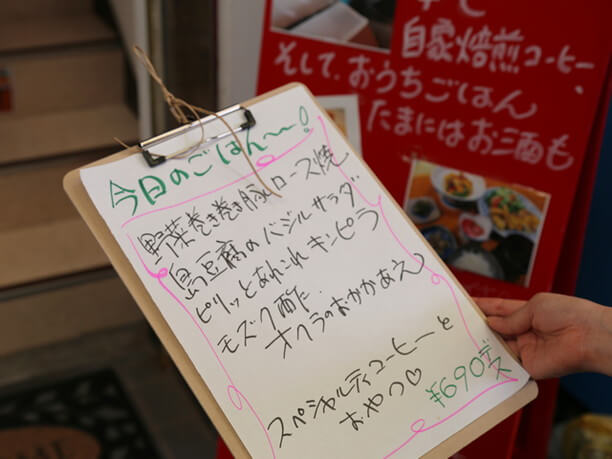 自家焙煎コーヒー、
そして、おうちごはん
たまにはお酒も
今日のごはん〜!
野菜巻き巻き豚ロース焼
島豆腐のバジルサラダ
ピリッとあれこれキンピラ
モズク酢
オクラのおかかあえ
スペシャルティコーヒーと
おやつ♡
¥690デス